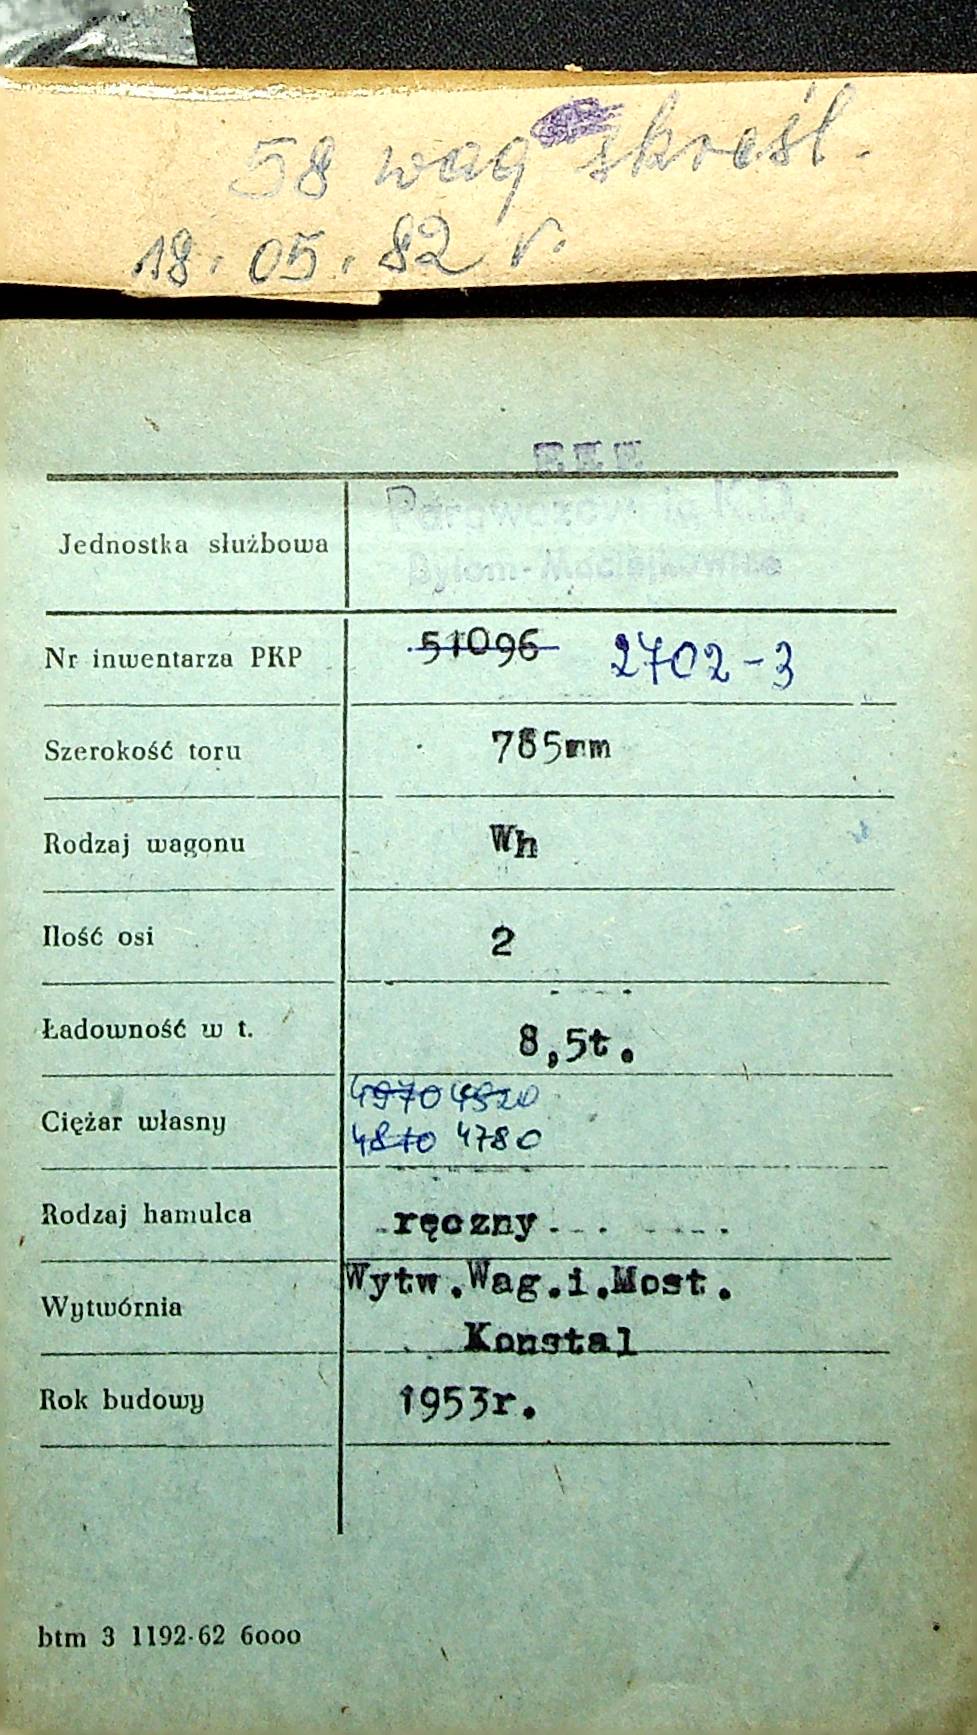 58 wag skreśl.
18.05.82 r.
PKP
Parowozownia K.D.
Bytom-Maciejkowice
Jednostka służbowa
Nr inwentarza PKP 51096 2702-3
Szerokość toru 785mm
Rodzaj wagonu Wh
Ilość osi 2
Ładowność w t. 8,5t.
4970 4920
Ciężar własny
4810 4780
Rodzaj hamulca ręczny
Wytw.Wag.i.Most.
Wytwórnia
Konstal
Rok budowy 1953r.
btm 3 1192-62 6000